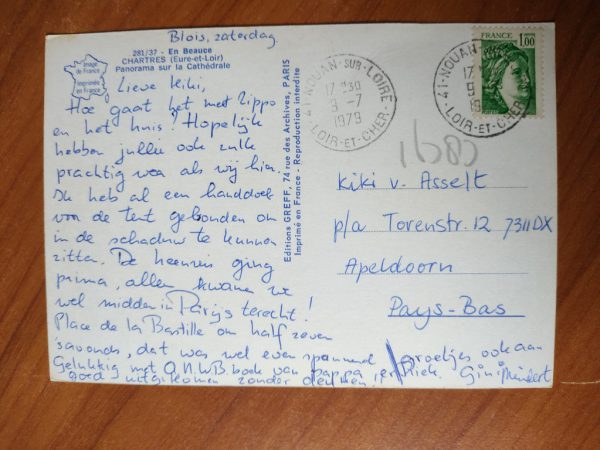 Blois, zaterdag
281/37 - En Beauce
CHARTRES (Eure-et-Loir)
Panorama sur la Cathédrale
Image
de France
Imprimée
en France
Lieve Kiki,
Hoe gaat het met Zippo
en het huis? Hopelijk
hebben jullie ook zulk
prachtig weer als wij hier.
Ik heb al een handdoek
voor de tent gebonden om
in de schaduw te kunnen
zitten. De heenreis ging
prima, alleen kwamen we
wel midden in Parijs terecht!
Place de la Bastille om half zeven
's avonds, dat was wel even spannend
Gelukkig met A.N.W.B. boek van pappa
goed uitgekomen zonder
groetjes ook aan
Gini Meindert
Editions GREFF, 74 rue des Archives, PARIS
Imprimé en France - Reproduction interdite
41-NOUAN-SUR-LOIRE
17 H30
9 -7
1979
LOIR-ET-CHER
FRANCE
1,00
41-NOUAN
17
9
19
LOIR-ET-CHER
Kiki v. Asselt
p/a Torenstr. 12 7311DX
Apeldoorn
Pays-Bas